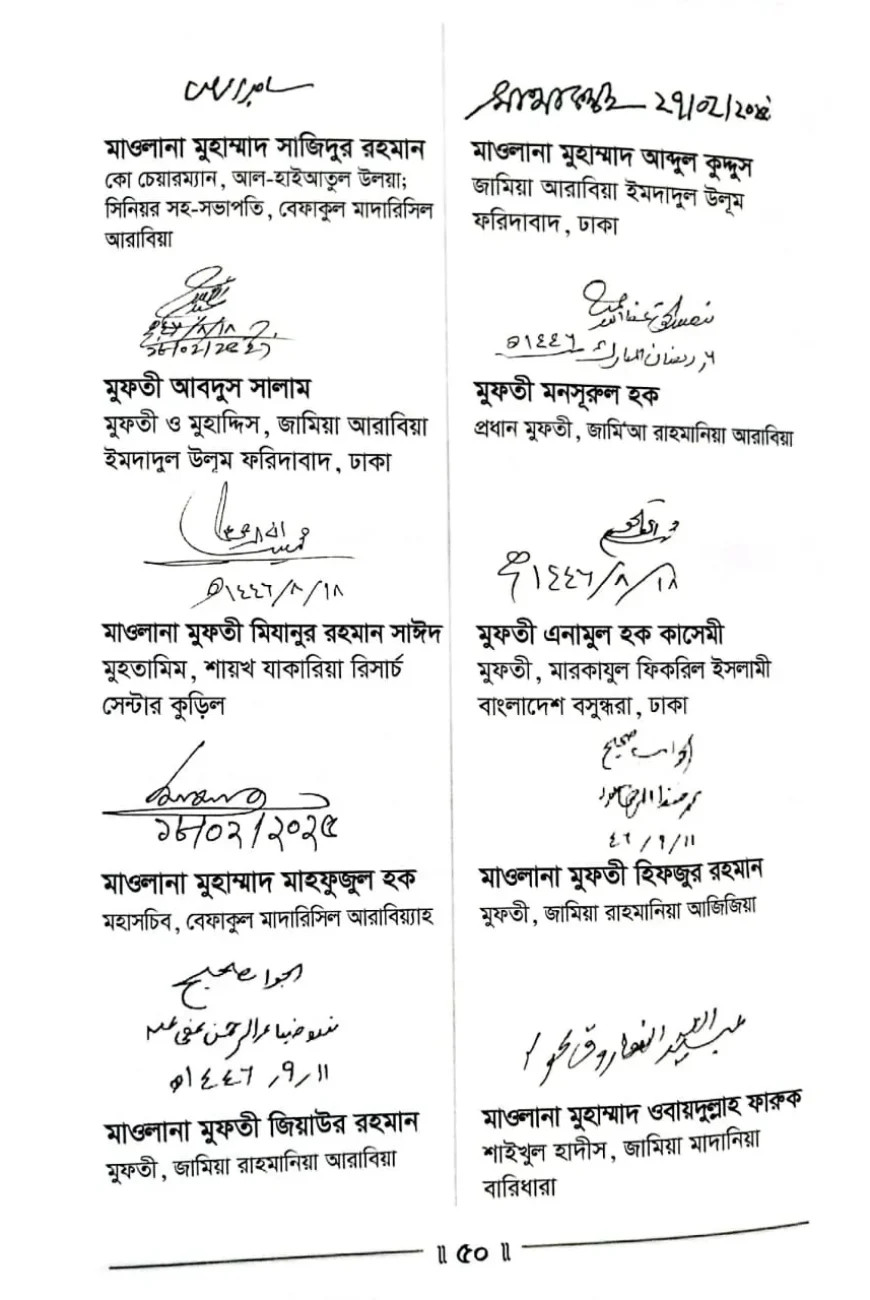 মাওলানা মুহাম্মাদ সাজিদুর রহমান
কো চেয়ারম্যান, আল-হাইআতুল উলয়া;
সিনিয়র সহ-সভাপতি, বেফাকুল মাদারিসিল
আরাবিয়া
১৮/০২/২০২৫
মুফতী আবদুস সালাম
মুফতী ও মুহাদ্দিস, জামিয়া আরাবিয়া
ইমদাদুল উলূম ফরিদাবাদ, ঢাকা
١٤٤٦/٨/١٨
মাওলানা মুফতী মিযানুর রহমান সাঈদ
মুহতামিম, শায়খ যাকারিয়া রিসার্চ
সেন্টার কুড়িল
১৮/০২/২০২৫
মাওলানা মুহাম্মাদ মাহফুজুল হক
মহাসচিব, বেফাকুল মাদারিসিল আরাবিয়্যাহ
الجواب صحيح
١٤٤٦/٩/١١
মাওলানা মুফতী জিয়াউর রহমান
মুফতী, জামিয়া রাহমানিয়া আরাবিয়া
মাওলানা মুহাম্মাদ আব্দুল কুদ্দুস
জামিয়া আরাবিয়া ইমদাদুল উলূম
ফরিদাবাদ, ঢাকা
رمضان المبارك ١٤٤٦
মুফতী মনসূরুল হক
প্রধান মুফতী, জামি'আ রাহমানিয়া আরাবিয়া
١٤٤٦/٨/١٨
মুফতী এনামুল হক কাসেমী
মুফতী, মারকাযুল ফিকরিল ইসলামী
বাংলাদেশ বসুন্ধরা, ঢাকা
الجواب صحيح
٤٦/٩/١١
মাওলানা মুফতী হিফজুর রহমান
মুফতী, জামিয়া রাহমানিয়া আজিজিয়া
মাওলানা মুহাম্মাদ ওবায়দুল্লাহ ফারুক
শাইখুল হাদীস, জামিয়া মাদানিয়া
বারিধারা
॥ ৫০ ॥